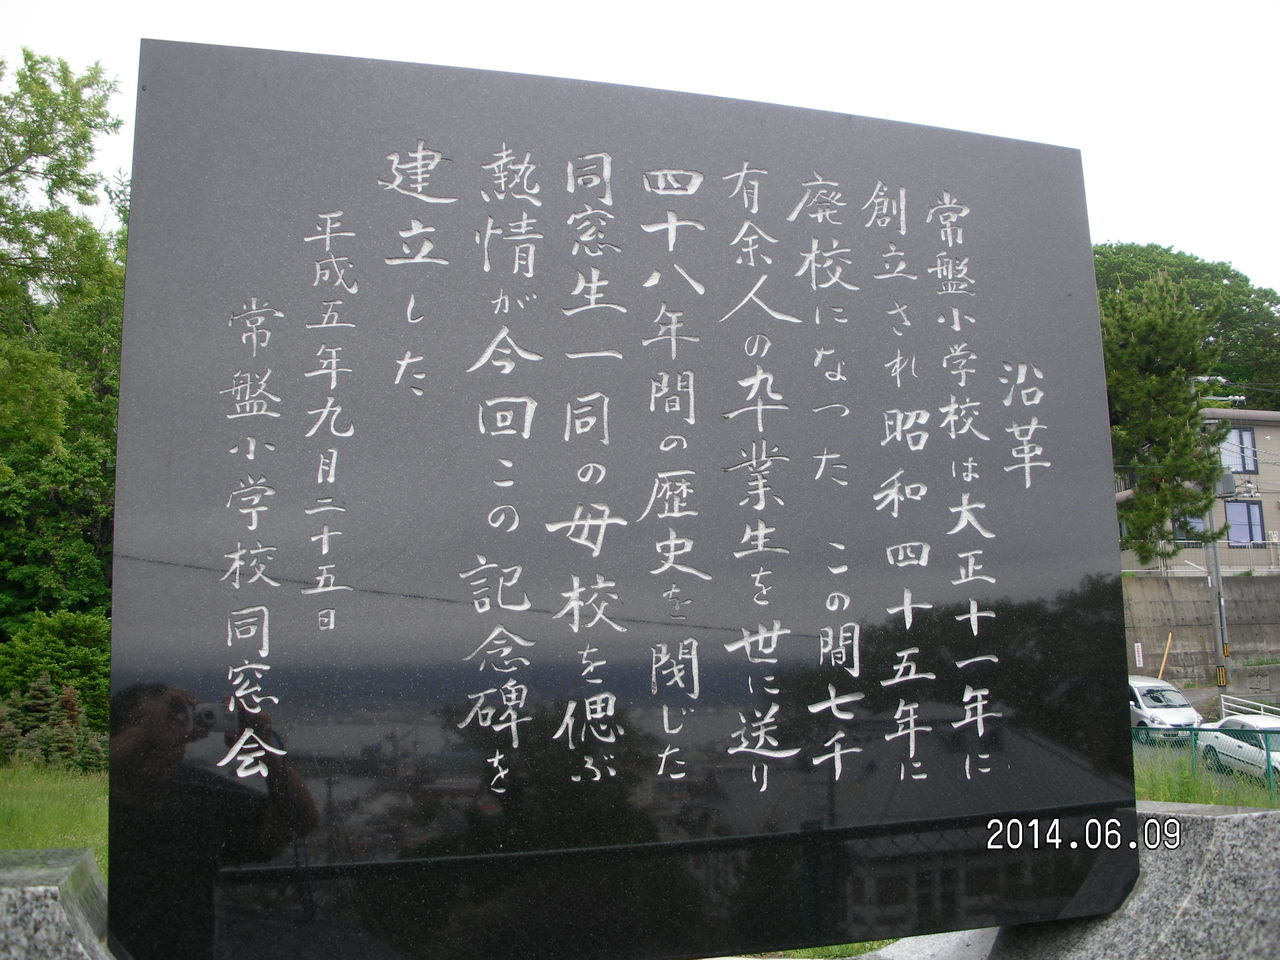 沿革
常盤小学校は大正十一年に
創立され昭和四十五年に
廃校になった この間七千
有余人の卆業生を世に送り
四十八年間の歴史を閉じた
同窓生一同の母校を偲ぶ
熱情が今回この記念碑を
建立した、
平成五年九月二十五日
常盤小学校同窓会
2014.06.09